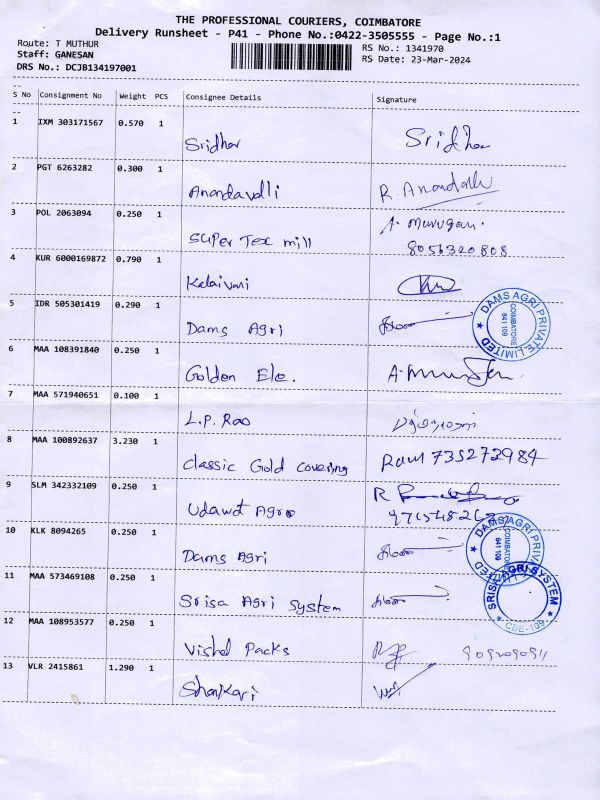 THE PROFESSIONAL COURIERS, COIMBATORE
Delivery Runsheet - P41 - Phone No.:0422-3505555 - Page No.:1
Route: T MUTHUR
RS No.: 1341970
Staff: GANESAN
RS Date: 23-Mar-2024
DRS No.: DCJB134197001
S No Consignment No Weight PCS Consignee Details Signature
1 IXM 303171567 0.570 1
Sridhar Sridhar
2 PGT 6263282 0.300 1
Anandavalli R. Anandavalli
3 POL 2063094 0.250 1
Super Tex mill A. Murugan.
8056320808
4 KUR 6000169872 0.790 1
Kalaivani
5 IDR 505301419 0.290 1
Dams Agri
DAMS AGRI PRIVATE LIMITED
COIMBATORE
641 109
6 MAA 108391840 0.250 1
Golden Ele.
7 MAA 571940651 0.100 1
L.P. Rao
8 MAA 100892637 3.230 1
Classic Gold Covering Ram 735272984
9 SLM 342332109 0.250 1
Udawat Agro R
10 KLK 8094265 0.250 1
Dams Agri
DAMS AGRI PRIVATE LIMITED
COIMBATORE
641 109
11 MAA 573469108 0.250 1
Srisa Agri System
SRISA AGRI SYSTEM
CBE-109
12 MAA 108953577 0.250 1
Vishal Packs
13 VLR 2415861 1.290 1
Shankari